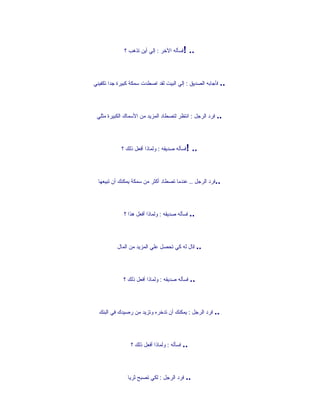 .. !فسأله الآخر : إلي أين تذهب ؟
.. فأجابه الصديق : إلي البيت لقد اصطدت سمكة كبيرة جدا تكفيني
.. فرد الرجل : انتظر لتصطاد المزيد من الأسماك الكبيرة مثلي
.. !فسأله صديقه : ولماذا أفعل ذلك ؟
..فرد الرجل .. عندما تصطاد أكثر من سمكة يمكنك أن تبيعها
.. فسأله صديقه : ولماذا أفعل هذا ؟
.. قال له كي تحصل علي المزيد من المال
.. فسأله صديقه : ولماذا أفعل ذلك ؟
.. فرد الرجل : يمكنك أن تدخره وتزيد من رصيدك في البنك
.. فسأله : ولماذا أفعل ذلك ؟
.. فرد الرجل : لكي تصبح ثريا